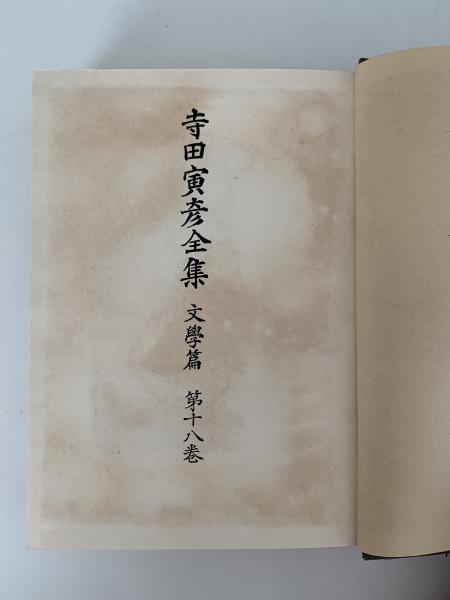 寺田寅彦全集 文學篇 第十八卷